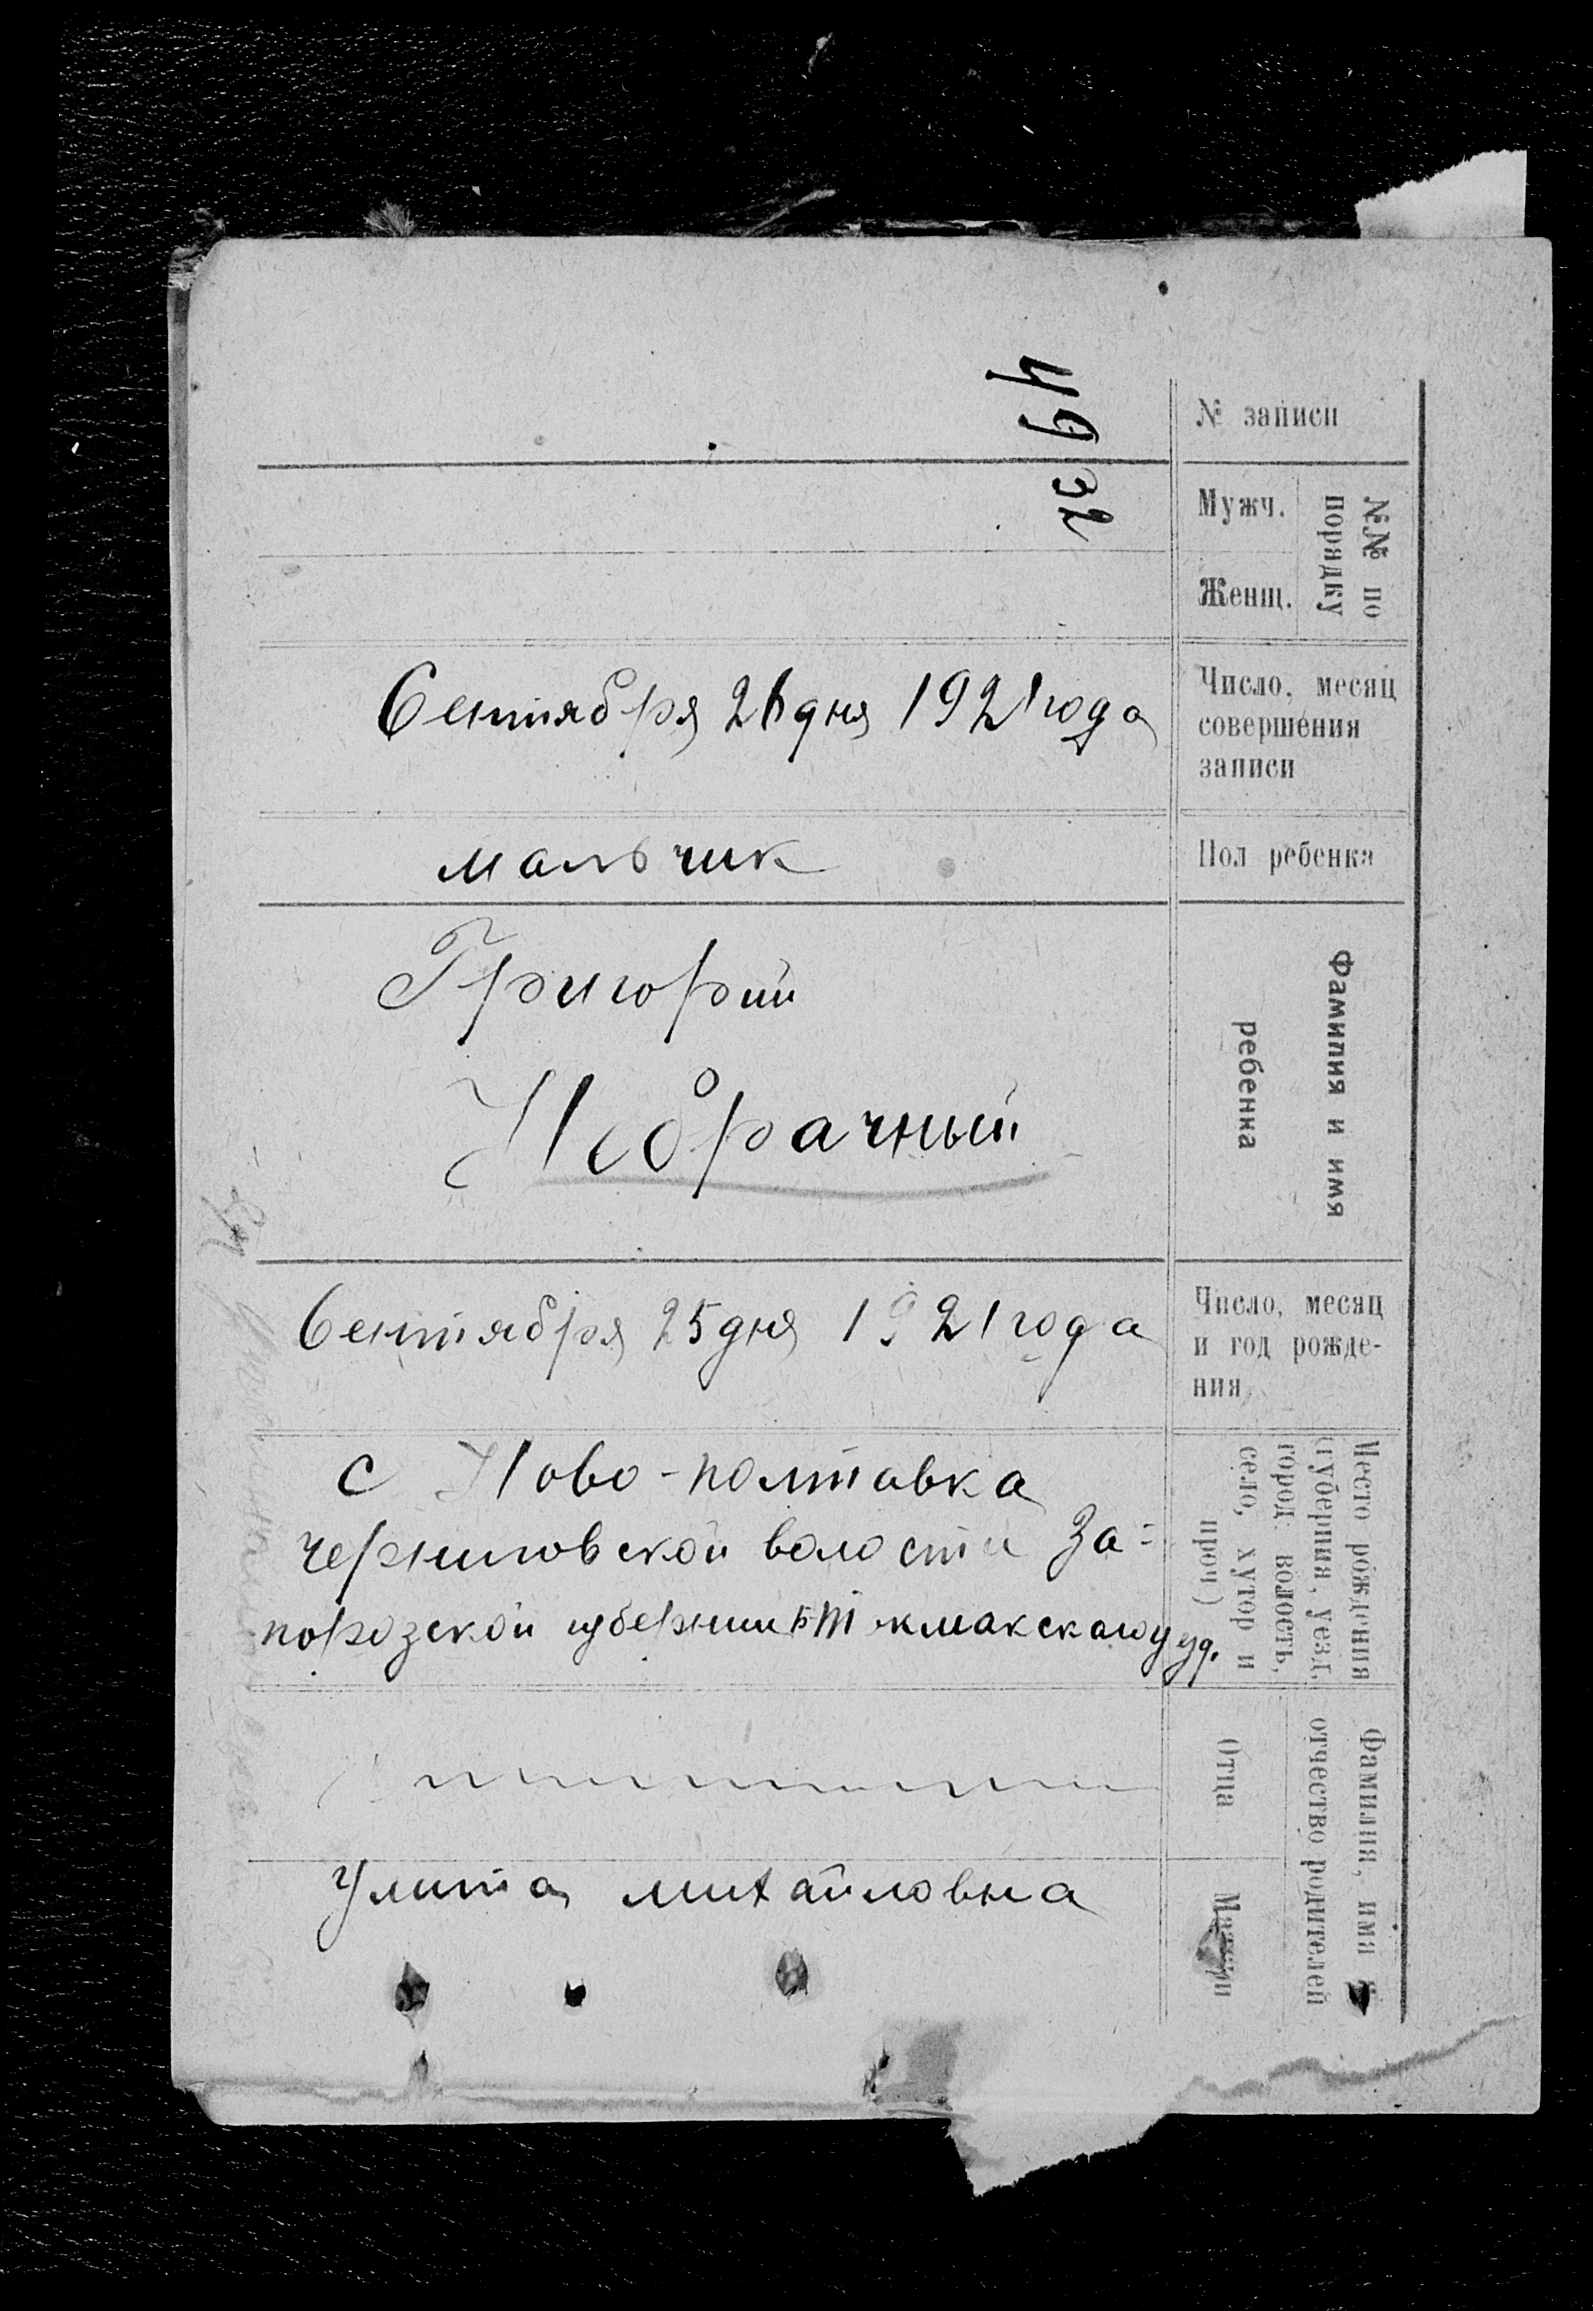 49
№ записи
32
Мужч.
Женщ.
№№ по
порядку
Сентября 26 дня 1921 года
Число, месяц
совершения
записи
мальчик
Пол ребенка
Григорий
Небрачный
Фамилия и имя
ребенка
Сентября 25 дня 1921 года
Число, месяц
и год рожде-
ния
с Ново-полтавка
черниговской волости За-
порозской губернии Б Т кмакскаго уезд.
Место рождения
(губерния, уезд,
город: волость,
село, хутор и
проч)
Отца
Улита михайловна
Матери
Фамилия, имя и
отчество родителей